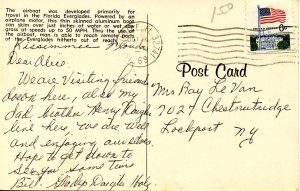 The airboat was developed primarily for
travel in the Florida Everglades. Powered by an
airplane motor, this thin skimmed aluminum boat
can skim over just inches of water or wet saw
grass at speeds up to 50 MPH. Thru the use of
the airboat, man is able to reach remote parts
of the Everglades hitherto out of reach.
150
Kissimmee
Dear Alice.
We are Visiting friends
down here, also my
Dad's brother Henry Daigler
live here, we are well
and enjoying ourselves.
Hope to get down to
see you some time
Bill. Gladys Daigler
Post Card
Mrs Ray Le Van
7027 Chestnutridge
Lockport
N y
6c